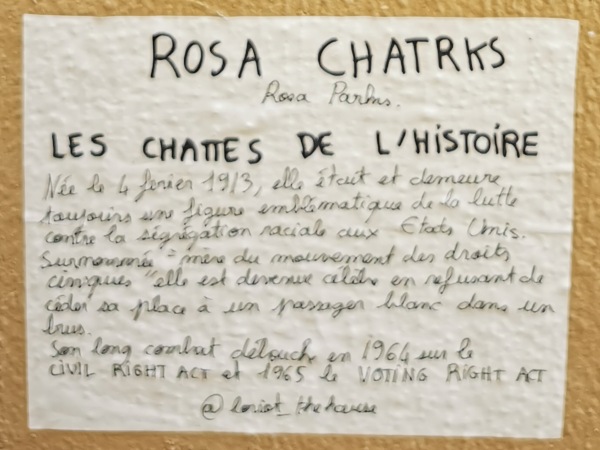 ROSA CHATRKS
Rosa Parks.
LES CHATTES DE L'HISTOIRE
Née le 4 février 1913, elle était et demeure
toujours une figure emblématique de la lutte
contre la ségrégation raciale aux Etats Unis.
Surnommée "mère du mouvement des droits
civiques" elle est devenue célèbre en refusant de
céder sa place à un passager blanc dans un
bus.
Son long combat débouche en 1964 sur le
CIVIL RIGHT ACT et 1965 le VOTING RIGHT ACT